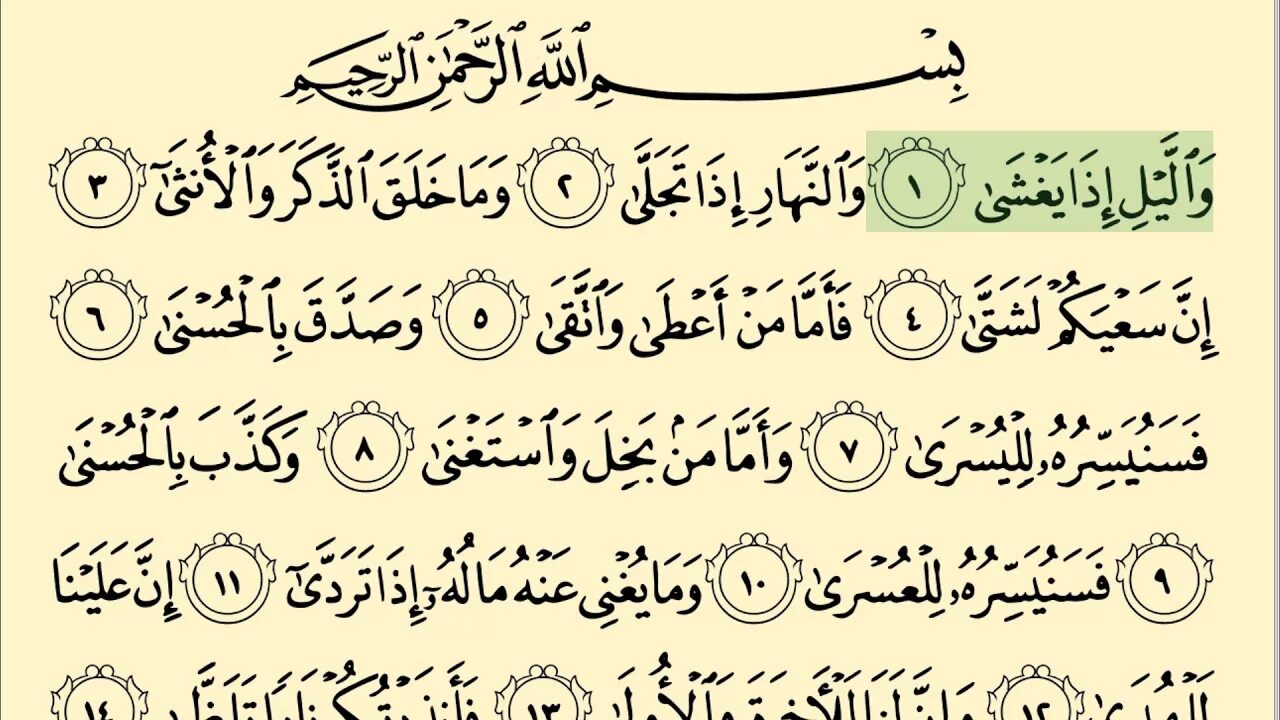 بِسْمِ ٱللَّهِ ٱلرَّحْمَٰنِ ٱلرَّحِيمِ
وَٱلَّيْلِ إِذَا يَغْشَىٰ ١ وَٱلنَّهَارِ إِذَا تَجَلَّىٰ ٢ وَمَا خَلَقَ ٱلذَّكَرَ وَٱلْأُنثَىٰٓ ٣
إِنَّ سَعْيَكُمْ لَشَتَّىٰ ٤ فَأَمَّا مَنْ أَعْطَىٰ وَٱتَّقَىٰ ٥ وَصَدَّقَ بِٱلْحُسْنَىٰ ٦
فَسَنُيَسِّرُهُۥ لِلْيُسْرَىٰ ٧ وَأَمَّا مَنۢ بَخِلَ وَٱسْتَغْنَىٰ ٨ وَكَذَّبَ بِٱلْحُسْنَىٰ
٩ فَسَنُيَسِّرُهُۥ لِلْعُسْرَىٰ ١٠ وَمَا يُغْنِى عَنْهُ مَالُهُۥٓ إِذَا تَرَدَّىٰٓ ١١ إِنَّ عَلَيْنَا
لَلْهُدَىٰ ١٢ وَإِنَّ لَنَا لَلْءَاخِرَةَ وَٱلْأُولَىٰ ١٣ فَأَنذَرْتُكُمْ نَارًا تَلَظَّىٰ ١٤